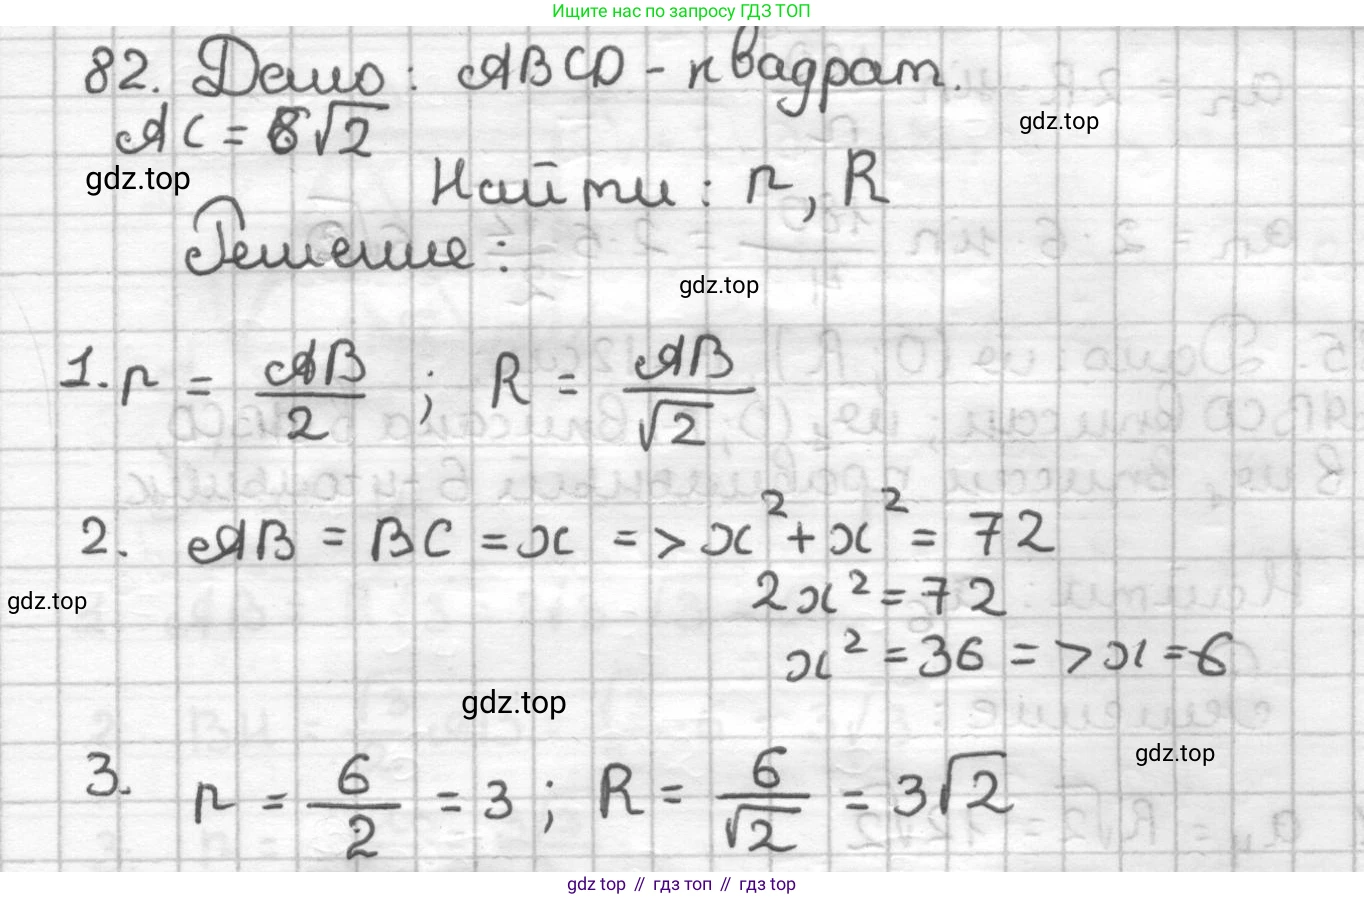 Ищите нас по запросу ГДЗ ТОП
82. Дано: ABCD - квадрат.
AC = 6√2
gdz.top
gdz.top
Найти: r, R
Решение:
gdz.top
1. r = AB/2 ; R = AB/√2
2. AB = BC = x => x² + x² = 72
2x² = 72
gdz.top
x² = 36 => x = 6
gdz.top
gdz.top
3. r = 6/2 = 3 ; R = 6/√2 = 3√2
gdz.top // гдз топ // gdz top